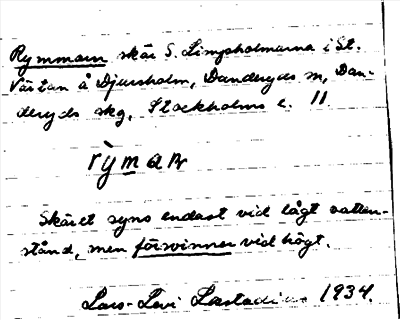 Rymmarn skär S. Lingsholmarna i St.
Värtan å Djursholm, Danderyds sn, Dan-
deryds skg, Stockholms l. 11
rỳmaɴ
Skäret syns endast vid lågt vatten-
stånd, men försvinner vid högt.
Lars-Levi Læstadius 1934.